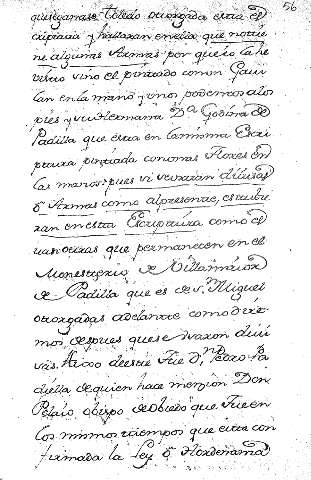 56
que se ganase Toledo otorgada esta es
criptura y hallaran en ella que no tie
ne algunas Armas por que io la he
visto sino el pintado con un Gavi
lan en la mano y unos podemos
y su Hermana Dª Godina de
Padilla que esta en la misma Escri
ptura pintada con unas Flores en
las manos pues si se usaran divisas
o Armas como al presente, estubie
ran en esta Escriptura como es
tan otras que permanecen en el
Monesterio de Villamaior
de Padilla que es de Sn Miguel
otorgadas adelante como dire
mos despues que se usaron divi
sas. Hixo de este Fue Dn Pedro Pa
dilla de quien hace mension Don
Pelaio obispo de obiedo que Fue en
los mismos tiempos que esta con
firmada la Ley o Hordenansa